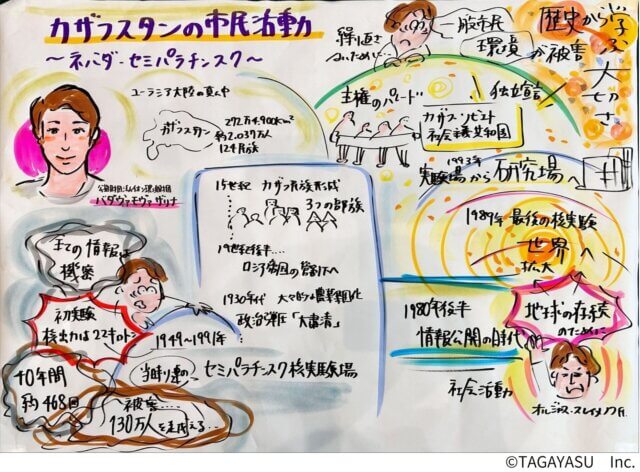 カザフスタンの市民活動
～ネバダ-セミパラチンスク～
ユーラシア大陸の真ん中
カザフスタン
272万4,900km²
約2,039万人
124民族
15世紀 カザフ民族形成
3つの部族
19世紀後半....
ロシア帝国の管轄下へ
1930年代
政治弾圧「大粛清」
全ての情報は
機密
初実験
核出力は22キロトン
1949～1991年
セミパラチンスク核実験場
40年間
約468回
被害....
130万人を超える..
繰り返さ
ないために…
一般市民
環境が被害
歴史から学ぶ
大切さ
主権のパレード
独立宣言
カザフ・ソビエト
社会主義共和国
1993年
実験場から研究場へ
1989年最後の核実験
世界へ
拡大
1980年後半
情報公開の時代
地球の存続
のために
社会活動
©TAGAYASU Inc.